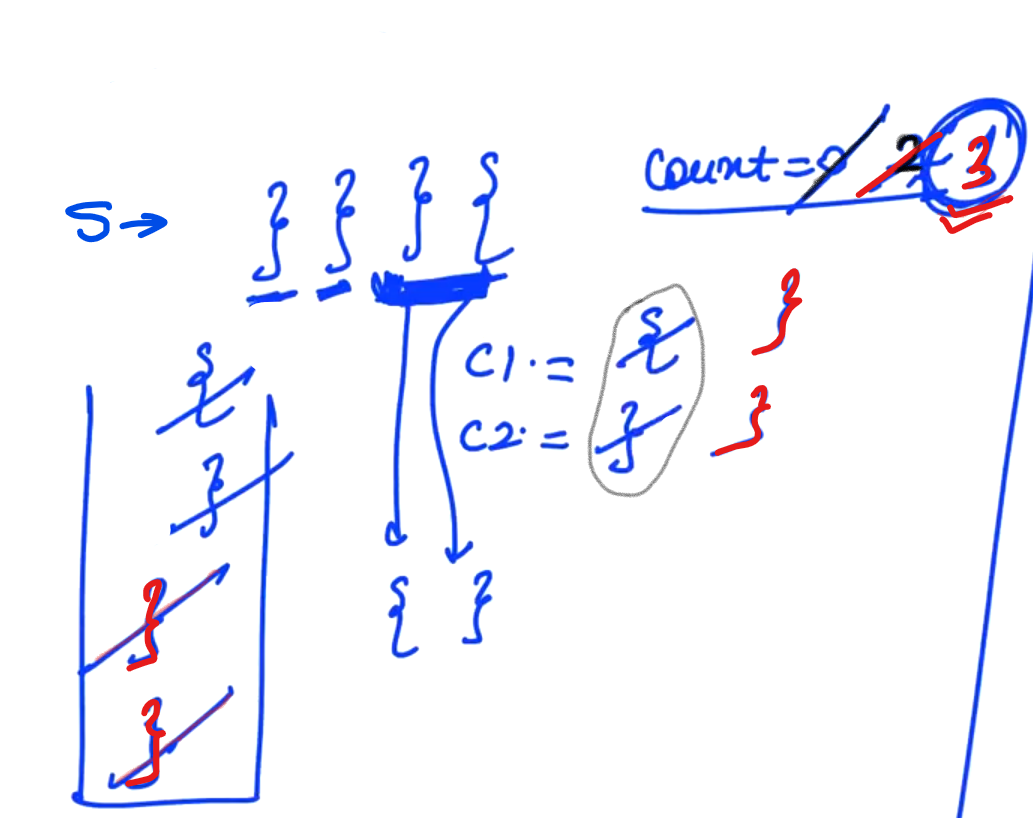 count = 0 2 3
S → } } } {
C1. = { }
{
C2. = } }
}
{ }
}
}